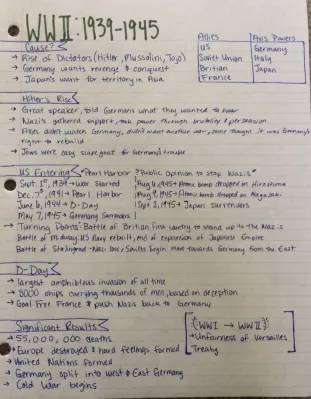 WWII: 1939-1945
Cause?
→ Rise of Dictators (Hitler, Mussolini, Tojo)
→ Germany wants revenge & conquest
→ Japan's want for territory in Asia
Allies
US
Soviet Union
Britian
France
Axis Powers
Germany
Italy
Japan
Hitler's Rise
→ Great speaker, told Germans what they wanted to hear
→ Nazi's gathered support, took power through brutality & persuasion
→ Allies didn't watch Germany, didn't want another war, some thought it was Germany's right to rebuild
→ Jews were easy scapegoat for Germany's trouble
US Entering → Pearl Harbor & Public Opinion to stop Nazis
Sept. 1st, 1939 → War Started
Dec. 7th, 1941 → Pearl Harbor
June 6, 1944 → D-Day
May 7, 1945 → Germany Surrenders
Aug 6, 1945 → Atomic bomb dropped on Hiroshima
Aug 9, 1945 → Atomic bomb dropped on Nagasaki
Sept 2, 1945 → Japan surrenders
→ Turning Points: Battle of Britian: First country to stand up to the Nazis
Battle of Midway: US Navy rebuilt, end of expansion of Japanese Empire
Battle of Stalingrad: Nazi loss, Soviets begin move towards Germany from the East
D-Day
→ largest amphibious invasion of all time
→ 5000 ships carrying thousands of men, based on deception
→ Goal: Free France & push Nazis back to Germany
Significant Results
→ 55,000,000 deaths
→ Europe destroyed & hard feelings formed
→ United Nations formed
→ Germany split into West & East Germany
→ Cold War begins
WWI → WWII
→ Unfairness of Versailles
Treaty